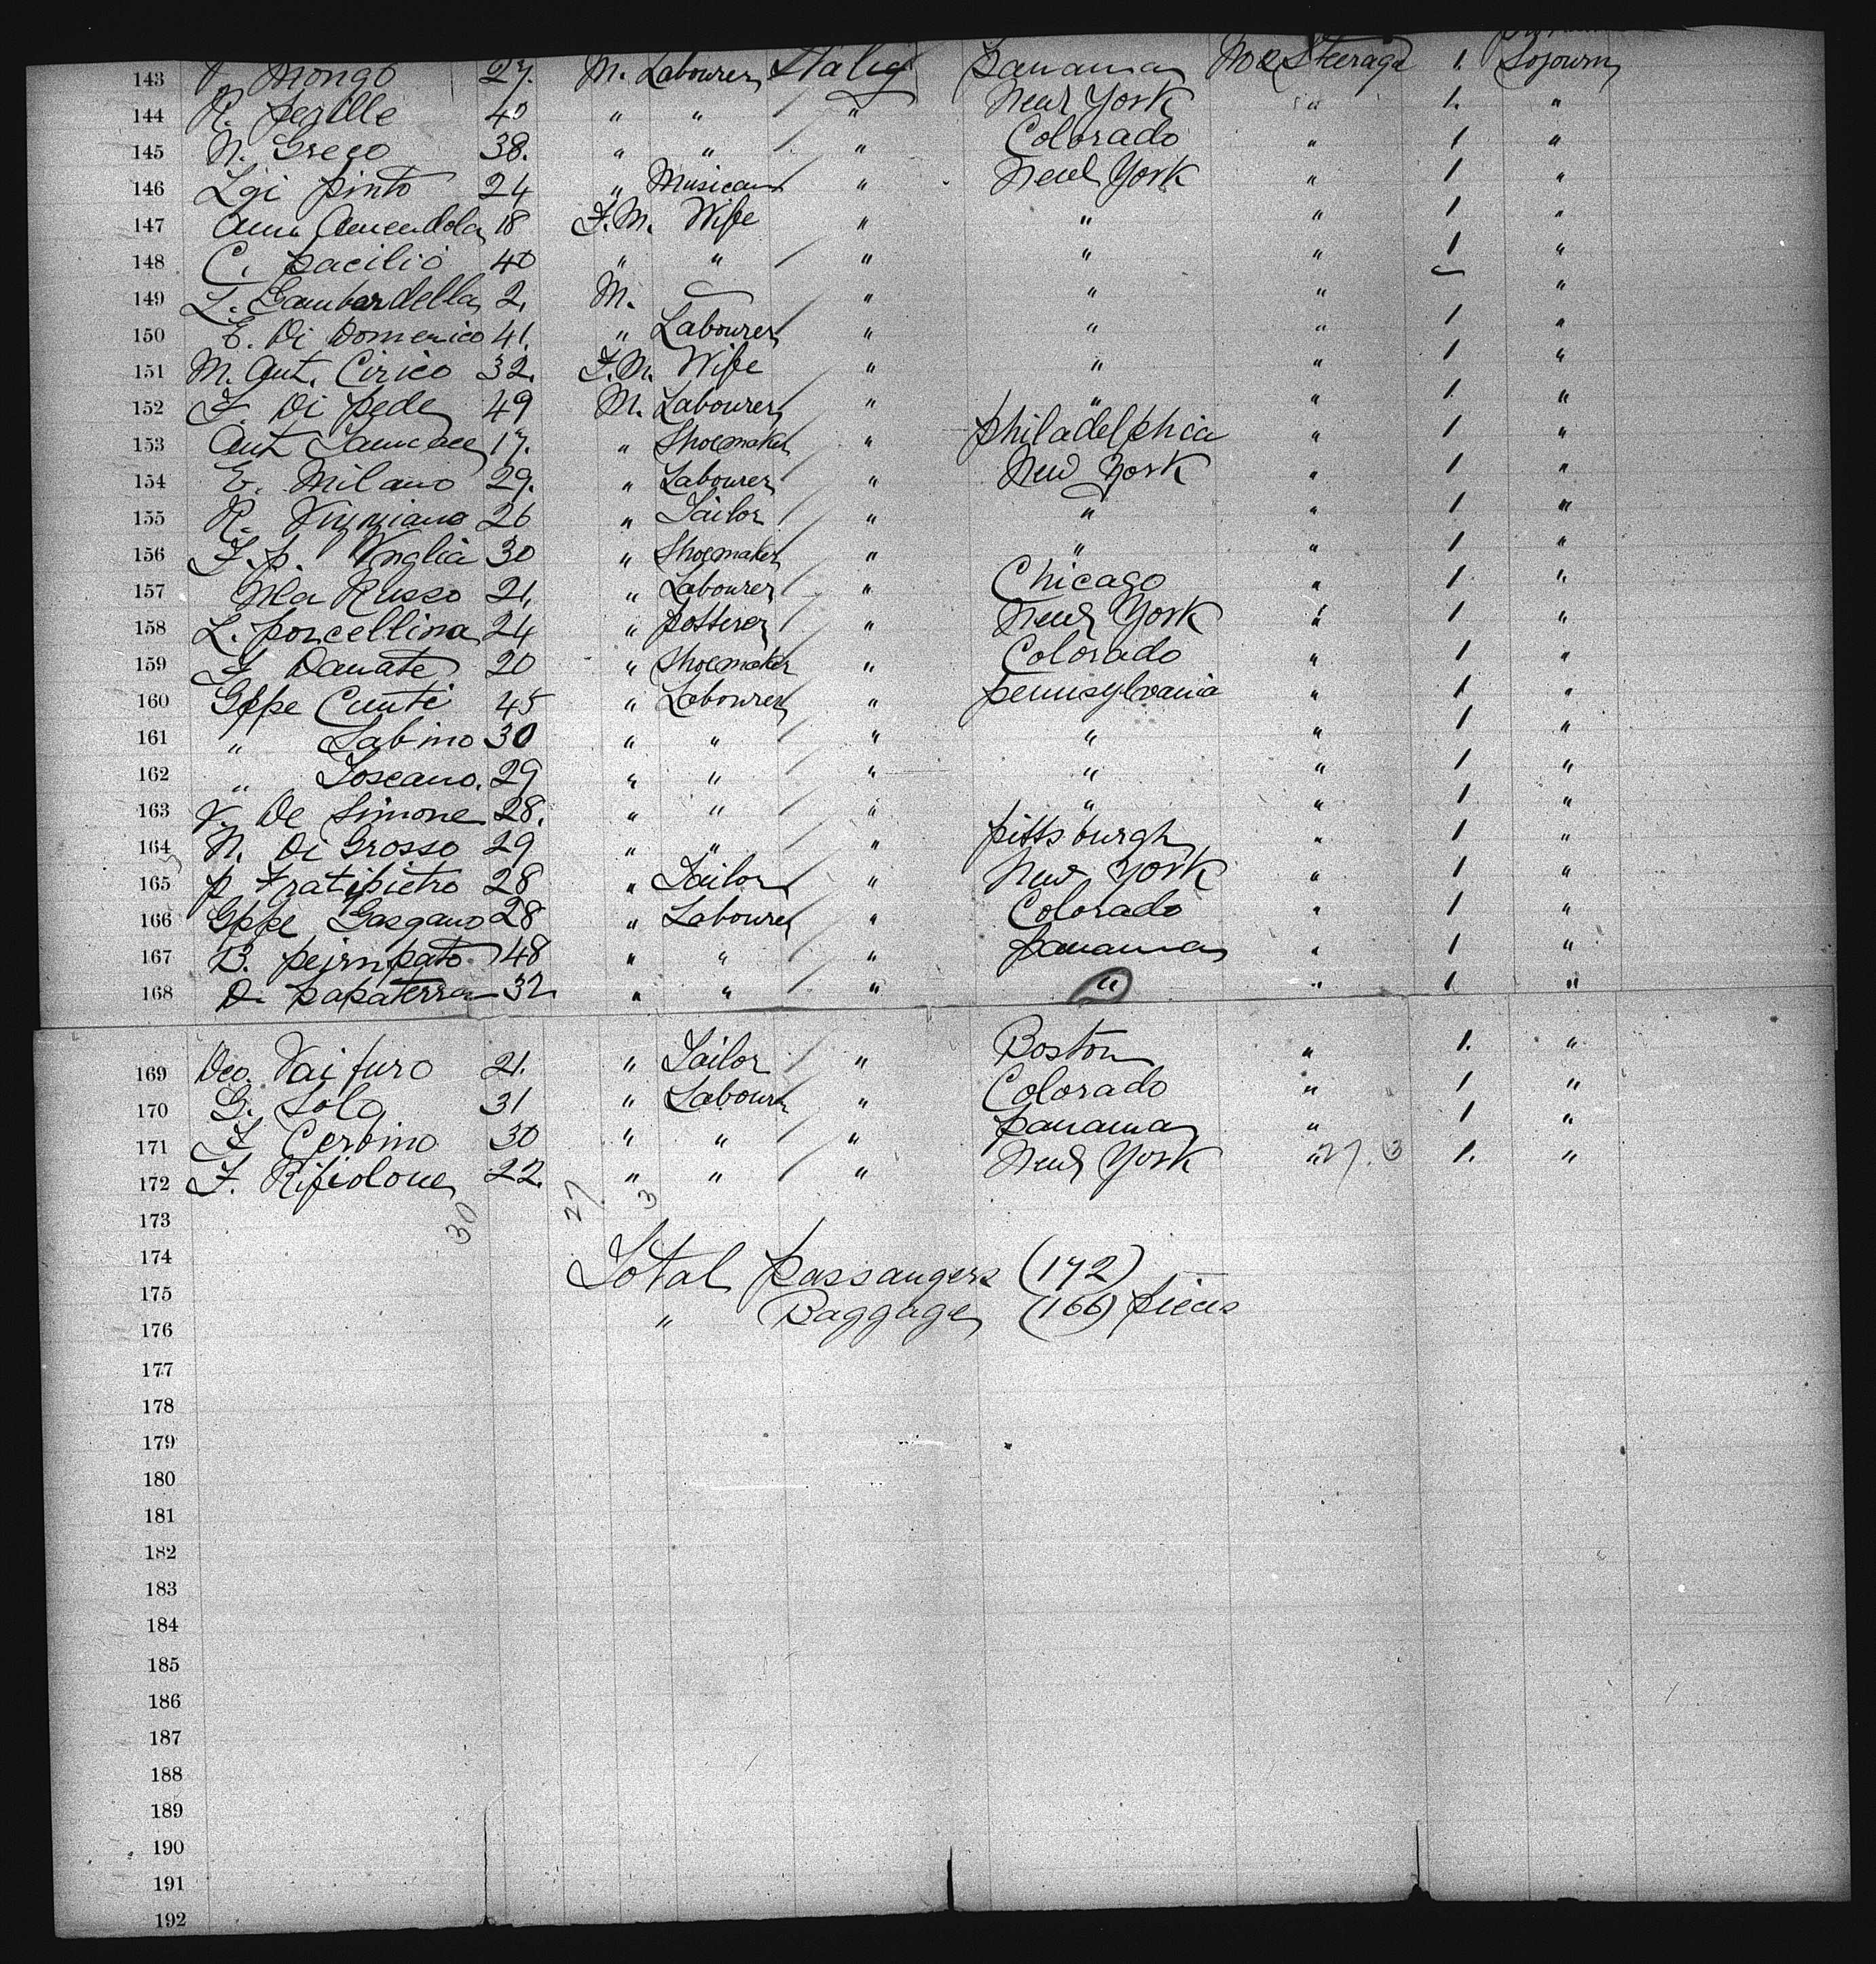 143 V. Mongo 27. M. Labourer Italy Panama No 2 Steerage 1. Sojourn
144 R. Perille 40 " " " New York " 1. "
145 N. Greco 38. " " " Colorado " 1 "
146 Lgi Pinto 24 " Musican " New York " 1 "
147 Ann. Amendola 18 F.M. Wife " " " 1 "
148 C. Pacilio 40 " " " " " 1 "
149 L. Lambardella 2. M. " " " "
150 E. Di Domenico 41. " Labourer " " " 1 "
151 M. Ant. Cirico 32. F.M. Wife " " " 1 "
152 F. Di Pede 49 M. Labourer " " " 1. "
153 Ant 17. " Shoemaker " Philadelphia " 1 "
154 E. Milano 29. " Labourer " New York " 1 "
155 R. 26 " Tailor " " " 1 "
156 F. P. Vnglia 30 " Shoemaker " " " 1 "
157 Nla Russo 21. " Labourer " Chicago " 1 "
158 L. Porcellina 24 " " New York " 1 "
159 F. Danate 20 " Shoemaker " Colorado " 1 "
160 Gppe Cunti 45 " Labourer " Pennsylvania " 1 "
161 " Sabino 30 " " " " " 1 "
162 " Toscano. 29 " " " " " 1 "
163 V. De Simone 28. " " " " " 1 "
164 N. Di Grosso 29 " " " Pittsburgh " 1 "
165 P. Fratipietro 28 " Tailor " New York " 1 "
166 Gppe Gasgano 28 " Labourer " Colorado " 1 "
167 B. 48 " " " Panama " 1 "
168 D. Papaterra 32 " " " " " 1 "
169 Deo. Vaifuro 21. " Tailor " Boston " 1. "
170 G. Sola 31 " Labourer " Colorado " 1 "
171 F. Cerbino 30 " " " Panama " 1 "
172 F. Rifiolone 22. " " " New York " 27. 3 1. "
173 30 27. 3
174 Total Passangers (172)
175 " Baggage (166) pieces
176
177
178
179
180
181
182
183
184
185
186
187
188
189
190
191
192